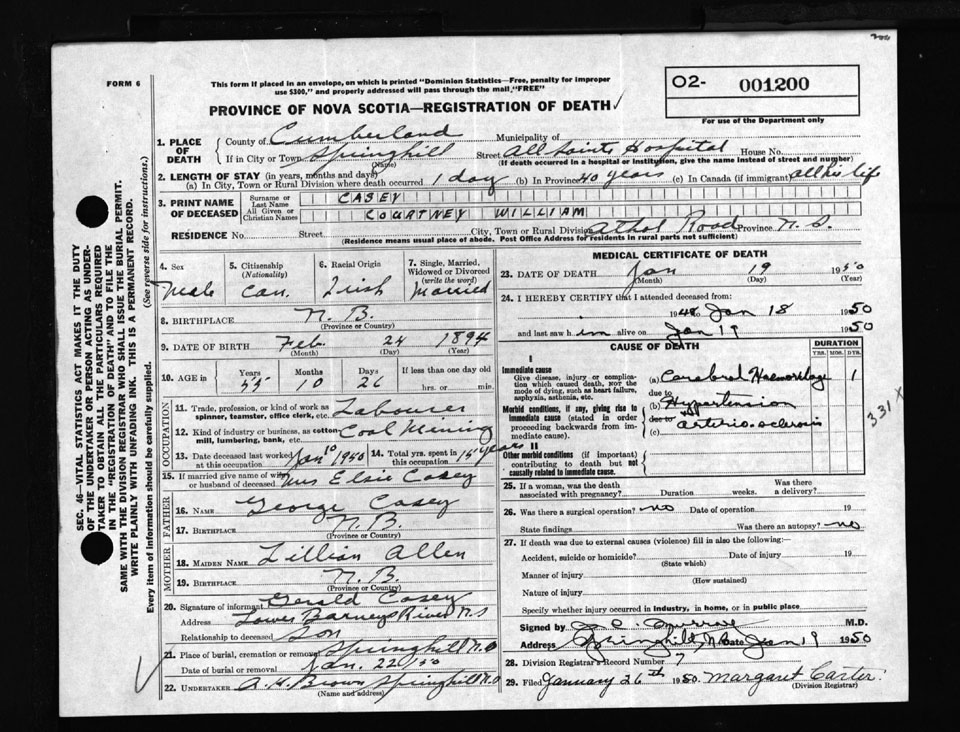 FORM 6
This form if placed in an envelope, on which is printed "Dominion Statistics—Free, penalty for improper
use $300," and properly addressed will pass through the mail, "FREE"
O2- 001200
For use of the Department only
PROVINCE OF NOVA SCOTIA—REGISTRATION OF DEATH
1. PLACE OF DEATH
County of Cumberland Municipality of
If in City or Town Springhill Street All Saints Hospital House No.
(Name) (If death occurred in a hospital or institution, give the name instead of street and number)
2. LENGTH OF STAY (in years, months and days)
(a) In City, Town or Rural Division where death occurred 1 day (b) In Province 40 years (c) In Canada (if immigrant) all his life
3. PRINT NAME OF DECEASED
Surname or Last Name CASEY
All Given or Christian Names COURTNEY WILLIAM
RESIDENCE No. Street City, Town or Rural Division Athol Road Province N.S.
(Residence means usual place of abode. Post Office Address for residents in rural parts not sufficient)
4. Sex Male
5. Citizenship (Nationality) Can.
6. Racial Origin Irish
7. Single, Married, Widowed or Divorced (write the word) Married
8. BIRTHPLACE N.B.
(Province or Country)
9. DATE OF BIRTH Feb. 24 1894
(Month) (Day) (Year)
10. AGE in Years 55 Months 10 Days 26 If less than one day old hrs. or min.
11. Trade, profession, or kind of work as spinner, teamster, office clerk, etc. Labourer
12. Kind of industry or business, as cotton mill, lumbering, bank, etc. Coal Mining
13. Date deceased last worked at this occupation Jan 10 1950 14. Total yrs. spent in this occupation 15 years
15. If married give name of wife or husband of deceased Mrs Elsie Casey
FATHER
16. NAME George Casey
17. BIRTHPLACE N.B.
(Province or Country)
MOTHER
18. MAIDEN NAME Lillian Allen
19. BIRTHPLACE N.B.
(Province or Country)
20. Signature of informant Gerald Casey
Address Lower Barneys River N.S
Relationship to deceased Son
21. Place of burial, cremation or removal Springhill N.S
Date of burial or removal Jan. 22/50
22. UNDERTAKER A.H. Brown Springhill N.S
(Name and address)
MEDICAL CERTIFICATE OF DEATH
23. DATE OF DEATH Jan 19 1950
(Month) (Day) (Year)
24. I HEREBY CERTIFY that I attended deceased from:
1948 to Jan 18 1950
and last saw him alive on Jan 19 1950
CAUSE OF DEATH
DURATION
YRS. MOS. DYS.
I
Immediate cause
Give disease, injury or complication which caused death, not the mode of dying, such as heart failure, asphyxia, asthenia, etc.
(a) Cerebral Haemorrhage 1
due to
Morbid conditions, if any, giving rise to immediate cause (stated in order proceeding backwards from immediate cause).
(b) Hypertension
due to
(c) arterio-sclerosis
331 X
II
Other morbid conditions (if important) contributing to death but not causally related to immediate cause.
25. If a woman, was the death associated with pregnancy? Duration weeks. Was there a delivery?
26. Was there a surgical operation? no Date of operation 19
State findings Was there an autopsy? no
27. If death was due to external causes (violence) fill in also the following:
Accident, suicide or homicide? Date of injury 19
(State which)
Manner of injury
(How sustained)
Nature of injury
Specify whether injury occurred in industry, in home, or in public place
Signed by J. C. Murray M.D.
Address Springhill, N. Date Jan 19 1950
28. Division Registrar's Record Number 7
29. Filed January 26th 1950 Margaret Carter
(Division Registrar)
SEC. 46—VITAL STATISTICS ACT MAKES IT THE DUTY
OF THE UNDERTAKER OR PERSON ACTING AS UNDER-
TAKER TO OBTAIN ALL THE PARTICULARS REQUIRED
IN THE "REGISTRATION OF DEATH" AND TO FILE THE
SAME WITH THE DIVISION REGISTRAR WHO SHALL ISSUE THE BURIAL PERMIT.
WRITE PLAINLY WITH UNFADING INK. THIS IS A PERMANENT RECORD.
Every item of information should be carefully supplied. (See reverse side for instructions.)